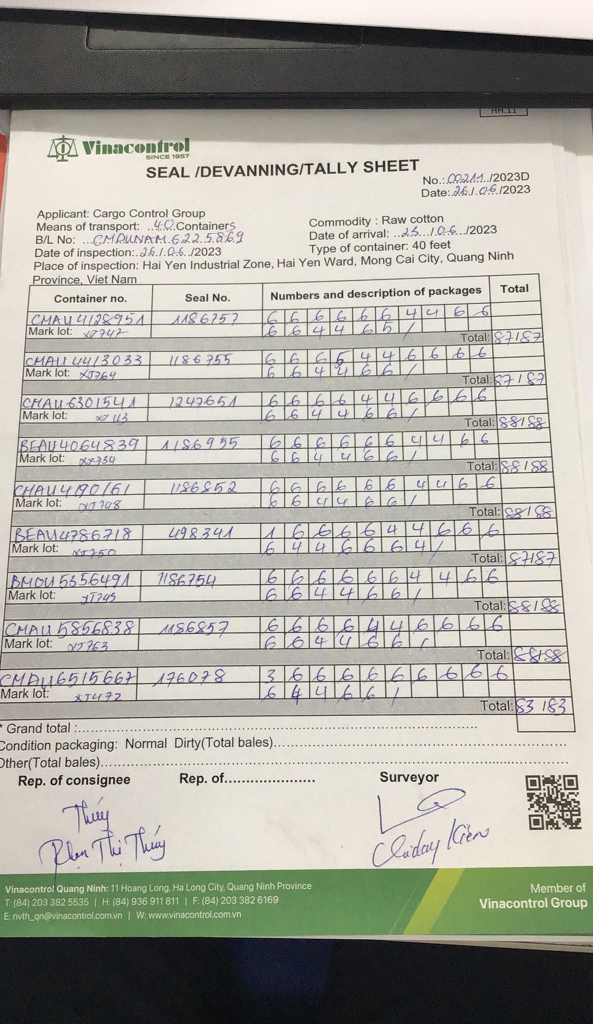 HH.11
Vinacontrol
SINCE 1957
SEAL /DEVANNING/TALLY SHEET
No.: 00211./2023D
Date: 26./.06./2023
Applicant: Cargo Control Group
Means of transport: ..40.Containers
Commodity : Raw cotton
B/L No: ...CMDUNAM.622.5869
Date of arrival: ..25.../.06.../2023
Date of inspection:..26./.06./2023
Type of container: 40 feet
Place of inspection: Hai Yen Industrial Zone, Hai Yen Ward, Mong Cai City, Quang Ninh
Province, Viet Nam
Container no. Seal No. Numbers and description of packages Total
CMAU4128951 1186757 6 6 6 6 6 6 4 4 6 6
Mark lot: XJ747 6 6 4 4 6 5 /
Total: 87/87
CMAU4413033 1186755 6 6 6 5 4 4 6 6 6 6
Mark lot: XJ764 6 6 4 4 6 6 /
Total: 87/87
CMAU6301541 1247651 6 6 6 6 4 4 6 6 6 6
Mark lot: 6 6 4 4 6 6 /
Total: 88/88
BEAU4064839 1186955 6 6 6 6 6 6 4 4 6 6
Mark lot: XJ754 6 6 4 4 6 6 /
Total: 88/88
CMAU4190161 1186852 6 6 6 6 6 6 4 4 6 6
Mark lot: XJ748 6 6 4 4 6 6 /
Total: 88/88
BEAU4786718 498341 1 6 6 6 6 4 4 6 6 6
Mark lot: XJ750 6 4 4 6 6 6 4 /
Total: 87/87
BMOU5356491 1186754 6 6 6 6 6 6 4 4 6 6
Mark lot: XJ745 6 6 4 4 6 6 /
Total: 88/88
CMAU5856838 1186857 6 6 6 6 4 4 6 6 6 6
Mark lot: XJ763 6 6 4 4 6 6 /
Total: 88/88
CMAU6515667 176078 3 6 6 6 6 6 6 6 6 6
Mark lot: XJ472 6 4 4 6 6 /
Total: 83/83
* Grand total :
Condition packaging: Normal Dirty(Total bales)
Other(Total bales)
Rep. of consignee Rep. of Surveyor
Thúy
Phan Thị Thúy
Kiên
Vinacontrol Quang Ninh: 11 Hoang Long, Ha Long City, Quang Ninh Province
T: (84) 203 382 5535 | H: (84) 936 911 811 | F: (84) 203 382 6169
E: nvth_qn@vinacontrol.com.vn | W: www.vinacontrol.com.vn
Member of
Vinacontrol Group